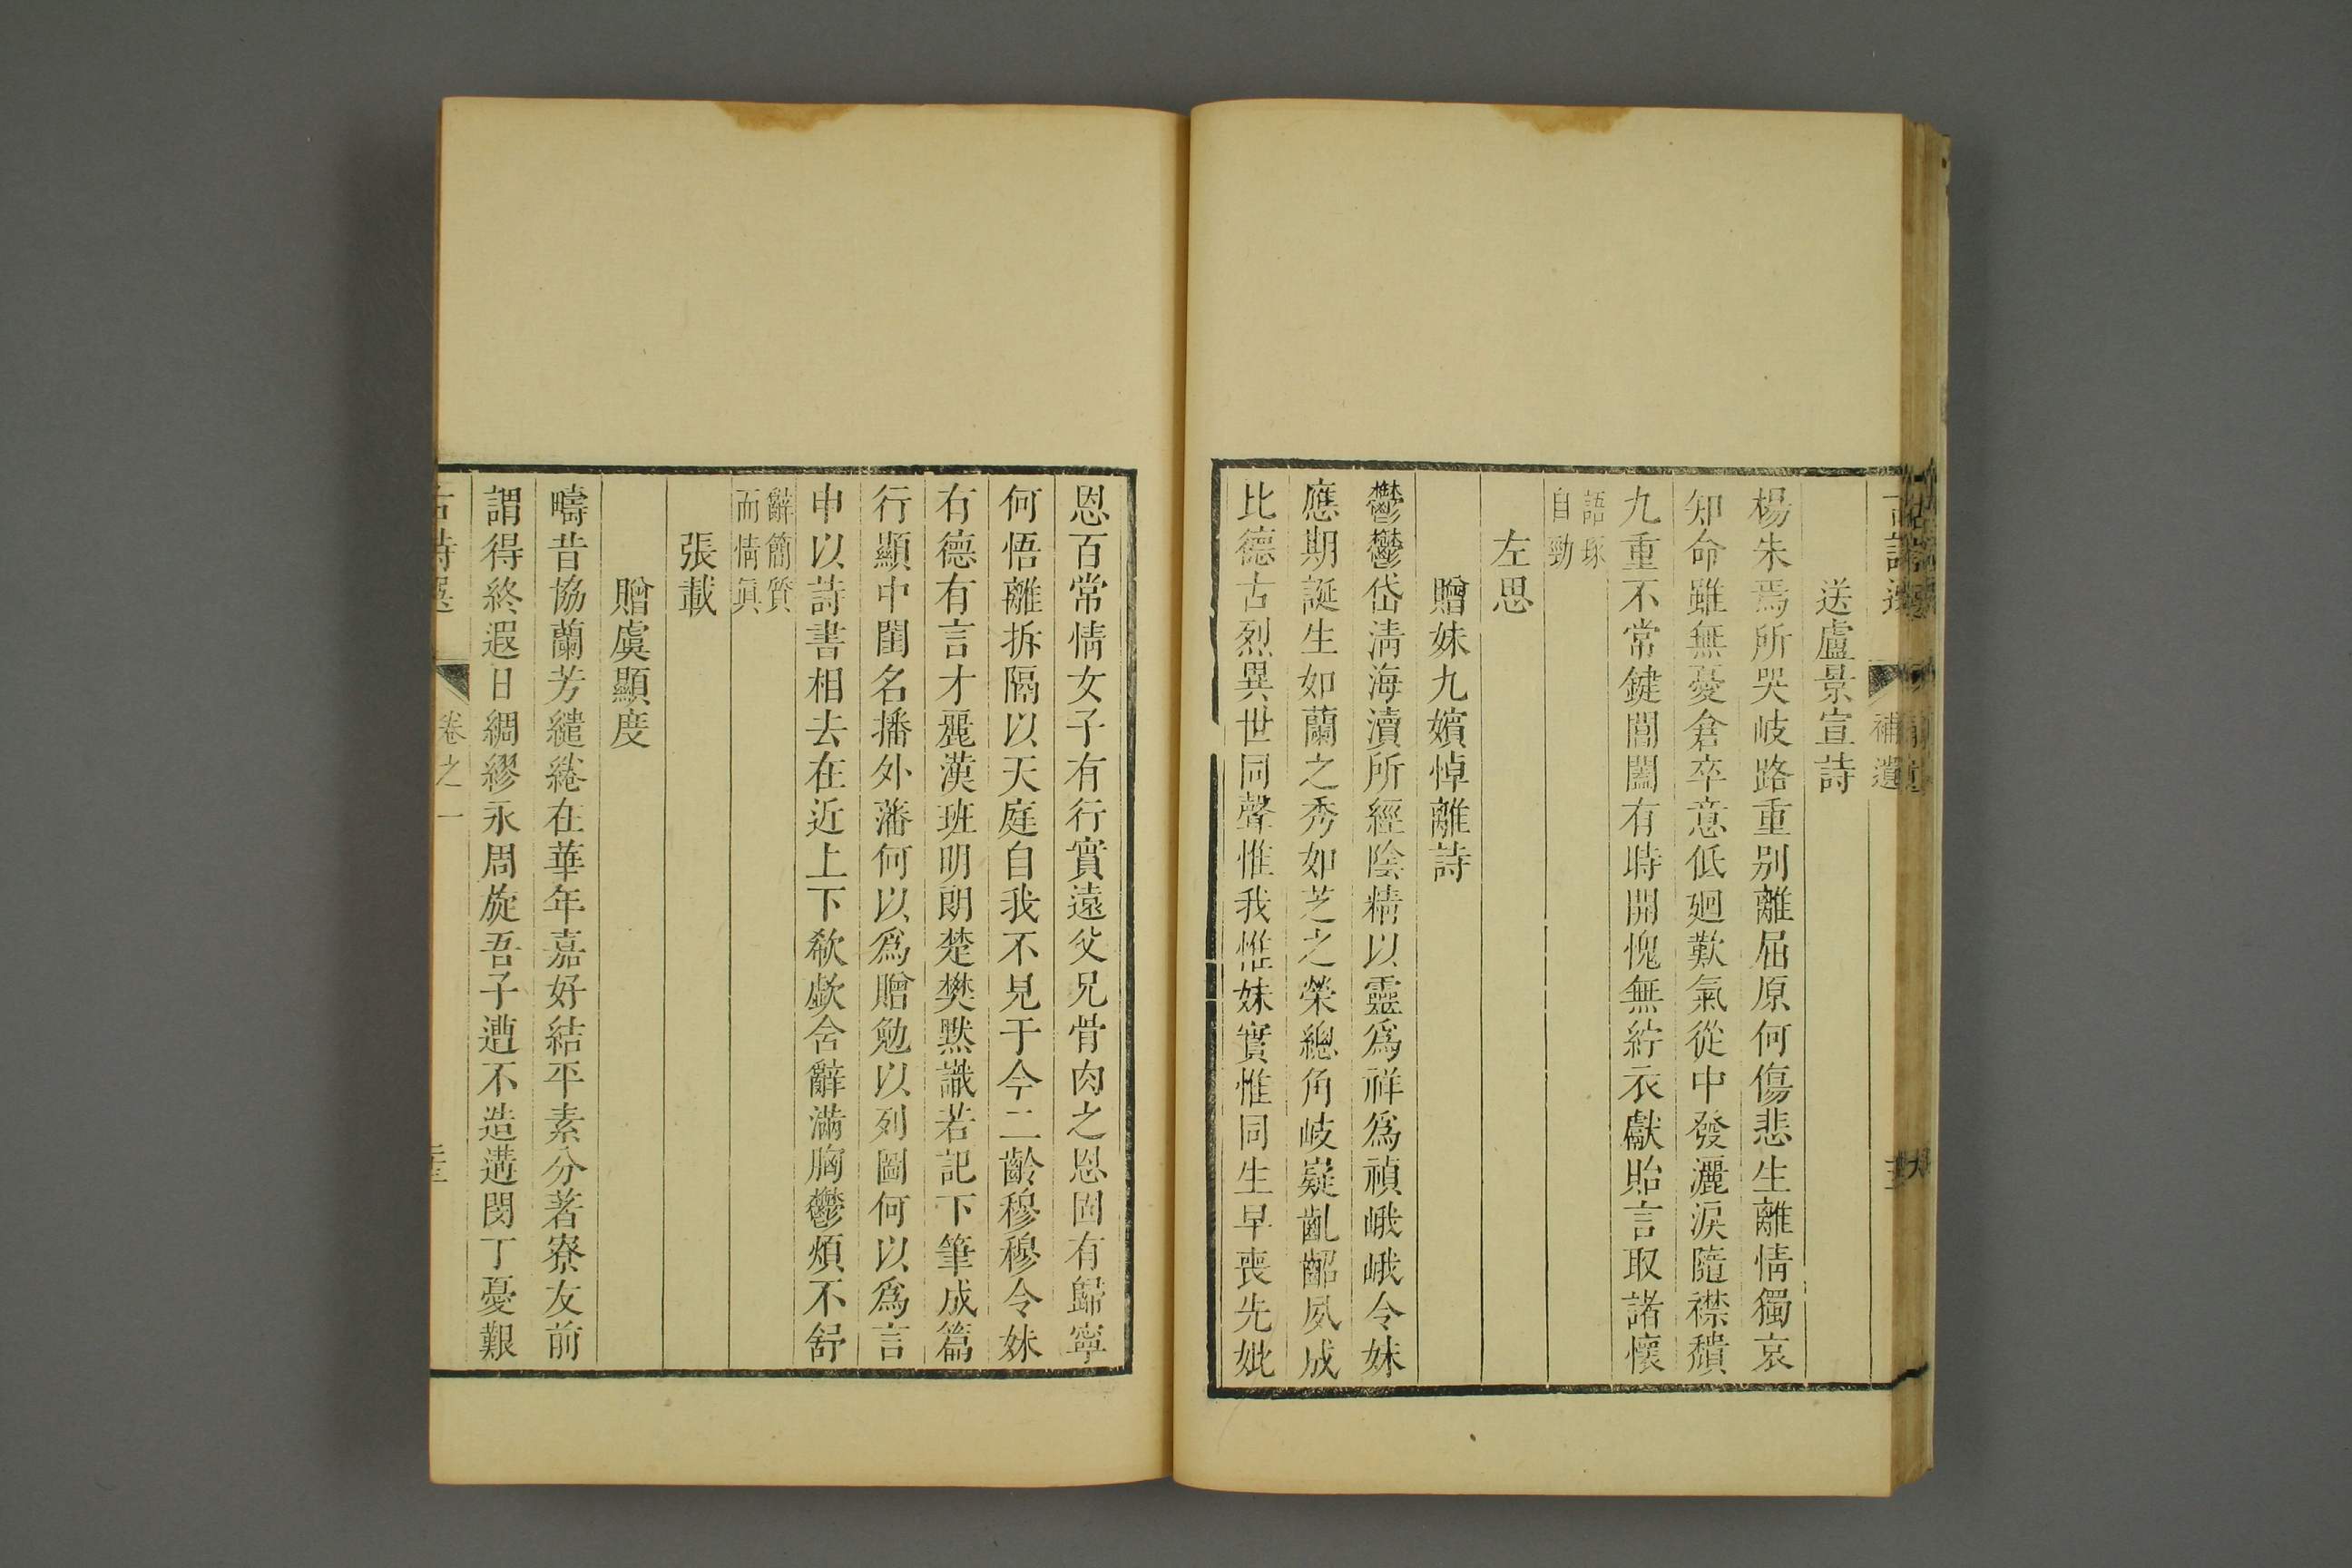 古詩選 補遺
送盧景宣詩
楊朱焉所哭岐路重別離屈原何傷悲生離情獨哀
知命雖無憂倉卒意低廻歎氣從中發灑淚隨襟穨
九重不常鍵閶闔有時開愧無紵衣獻貽言取諸懷
語琢
自勁
左思
贈妹九嬪悼離詩
鬱鬱岱淸海瀆所經陰精以靈爲祥爲禎峨峨令妹
應期誕生如蘭之秀如芝之榮總角岐嶷齓齠夙成
比德古烈異世同聲惟我惟妹實惟同生早喪先妣
恩百常情女子有行實遠父兄骨肉之恩固有歸寧
何悟離拆隔以天庭自我不見于今二齡穆穆令妹
有德有言才麗漢班明朗楚樊默識若記下筆成篇
行顯中閨名播外藩何以爲贈勉以列圖何以爲言
申以詩書相去在近上下欷歔含辭滿胸鬱煩不舒
辭簡質
而情眞
張載
贈虞顯度
疇昔協蘭芳繾綣在華年嘉好結平素分著寮友前
謂得終遐日綢繆永周旋吾子遭不造遘閔丁憂艱
古詩選 卷之一